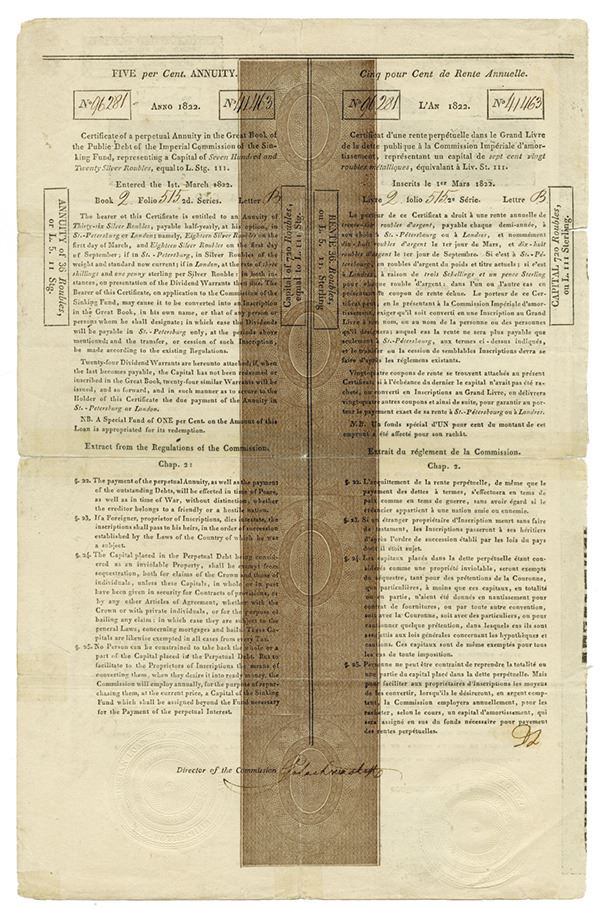 FIVE per Cent. ANNUITY.
No 96281 ANNO 1822. No 41463
Certificate of a perpetual Annuity in the Great Book of
the Public Debt of the Imperial Commission of the Sin-
king Fund, representing a Capital of Seven Hundred and
Twenty Silver Roubles, equal to L. Stg. 111.
Entered the 1st. March 1822.
Book 2 Folio 515 2d. Series. Letter B
The bearer of this Certificate is entitled to an Annuity of
Thirty-six Silver Roubles, payable half-yearly, at his option, in
St.-Petersburg or London; namely, Eighteen Silver Roubles on the
first day of March, and Eighteen Silver Roubles on the first day
of September, if in St.-Petersburg, in Silver Roubles of the
weight and standard now current; if in London, at the rate of three
shillings and one penny sterling per Silver Rouble: in both in-
stances, on presentation of the Dividend Warrants then due. The
Bearer of this Certificate, on application to the Commission of the
Sinking Fund, may cause it to be converted into an Inscription
in the Great Book, in his own name, or that of any person or
persons whom he shall designate; in which case the Dividends
will be payable in St.-Petersburg only, at the periods above
mentioned; and the transfer, or cession of such Inscription,
be made according to the existing Regulations.
Twenty-four Dividend Warrants are hereunto attached; if, when
the last becomes payable, the Capital has not been redeemed or
inscribed in the Great Book, twenty-four similar Warrants will be
issued, and so forward, and in such manner as to secure to the
Holder of this Certificate the due payment of the Annuity in
St.-Petersburg or London.
NB. A Special Fund of ONE per Cent. on the Amount of this
Loan is appropriated for its redemption.
Extract from the Regulations of the Commission.
Chap. 2:
§. 22. The payment of the perpetual Annuity, as well as the payment
of the outstanding Debts, will be effected in time of Peace,
as well as in time of War, without distinction, whether
the creditor belongs to a friendly or a hostile nation.
§. 23. If a Foreigner, proprietor of Inscriptions, dies intestate, the
inscriptions shall pass to his heirs, in the order of succession
established by the Laws of the Country of which he was
a subject.
§. 24. The Capital placed in the Perpetual Debt being consid-
ered as an inviolable Property, shall be exempt from
sequestration, both for claims of the Crown and those of
individuals, unless these Capitals, in whole or in part
have been given in security for Contracts of provisions, or
by any other Articles of Agreement, whether with the
Crown or with private individuals, or for the purpose of
bailing any claim: in which case they are subject to the
general Laws, concerning mortgages and bails. These Ca-
pitals are likewise exempted in all cases from every Tax.
§. 25. No Person can be constrained to take back the whole or a
part of the Capital placed in the Perpetual Debt. But to
facilitate to the Proprietors of Inscriptions the means of
converting them, when they desire it into ready money, the
Commission will employ annually, for the purpose of repur-
chasing them, at the current price, a Capital of the Sinking
Fund which shall be assigned beyond the Fund necessary
for the Payment of the perpetual Interest.
Director of the Commission
ANNUITY of 36 Roubles,
or L. 5. 11 Stg.
Capital of 720 Roubles,
equal to L. 111 Stg.
RENTE 36 Roubles,
ou L. 5. 11 Sterling
CAPITAL 720 Roubles,
ou L. 111 Sterling.
Cinq pour Cent de Rente Annuelle.
No 96281 L'AN 1822. No 41463
Certificat d'une rente perpétuelle dans le Grand Livre
de la dette publique à la Commission Impériale d'amor-
tissement, représentant un capital de sept cent vingt
roubles métalliques, équivalant à Liv. St. 111.
Inscrits le 1er Mars 1822.
Livre 2 folio 515 2e Série. Lettre B
Le porteur de ce Certificat a droit à une rente annuelle de
trente-six roubles d'argent, payable chaque demi-année, à
son choix à St.-Pétersbourg ou à Londres, et nommément
dix-huit roubles d'argent le 1er jour de Mars, et dix-huit
roubles d'argent le 1er jour de Septembre. Si c'est à St.-Pé-
tersbourg, en roubles d'argent du poids et titre actuels; si c'est
à Londres, à raison de trois Schellings et un pence Sterling
pour chaque rouble d'argent: dans l'un ou l'autre cas en
présentant le coupon de rente échu. Le porteur de ce Cer-
tificat peut, en le présentant à la Commission Impériale d'amor-
tissement, exiger qu'il soit converti en une Inscription au Grand
Livre à son nom, ou au nom de la personne ou des personnes
qu'il désignera auquel cas la rente ne sera plus payable que
seulement à St.-Pétersbourg, aux termes ci-dessus indiqués,
et le transfer ou la cession de semblables Inscriptions devra se
faire d'après les réglemens existans.
Vingt-quatre coupons de rente se trouvent attachés au présent
Certificat; si à l'échéance du dernier le capital n'avait pas été ra-
cheté, ou converti en Inscriptions au Grand Livre, on délivrera
vingt-quatre autres coupons et ainsi de suite, pour garantir au por-
teur le payement exact de sa rente à St.-Pétersbourg ou à Londres.
N.B. Un fonds spécial d'UN pour cent du montant de cet
emprunt a été affecté pour son rachât.
Extrait du réglement de la Commission.
Chap. 2.
§. 22. L'acquittement de la rente perpétuelle, de même que le
payement des dettes à termes, s'effectuera en tems de
paix comme en tems de guerre, sans avoir égard si le
créancier appartient à une nation amie ou ennemie.
§. 23. Si un étranger propriétaire d'Inscription meurt sans faire
de testament, les Inscriptions passeront à ses héritiers
d'après l'ordre de succession établi par les lois du pays
dont il était sujet.
§. 24. Les capitaux placés dans la dette perpétuelle étant con-
sidérés comme une propriété inviolable, seront exempts
de séquestre, tant pour des prétentions de la Couronne,
que particulières, à moins que ces capitaux, en totalité
ou en partie, n'aient été donnés en nantissement pour
contrat de fournitures, ou par toute autre convention,
soit avec la Couronne, soit avec des particuliers, ou pour
cautionner quelque prétention, dans lesquels cas ils sont
assujettis aux lois générales concernant les hypothèques et
cautions. Ces capitaux sont de même exemptés pour tous
les cas de toute imposition.
§. 25. Personne ne peut être contraint de reprendre la totalité ou
une partie du capital placé dans la dette perpétuelle. Mais
pour faciliter aux propriétaires d'Inscriptions les moyens
de les convertir, lorsqu'ils le désireront, en argent comp-
tant, la Commission employera annuellement, pour les
racheter, selon le cours, un capital d'amortissement, qui
sera assigné en sus du fonds nécessaire pour payement
des rentes perpétuelles.